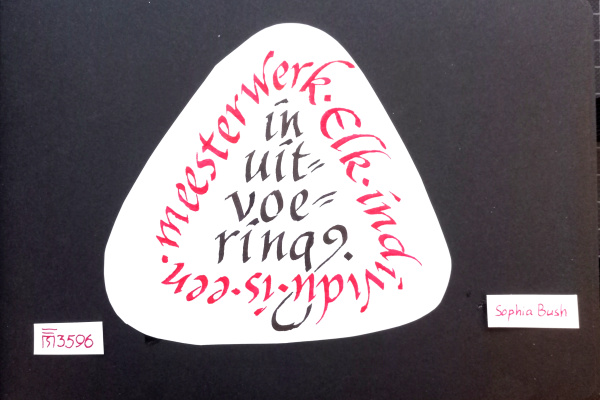 Elk·individu·is·een·meesterwerk.
in
uit=
voe=
ring.
3596
Sophia Bush